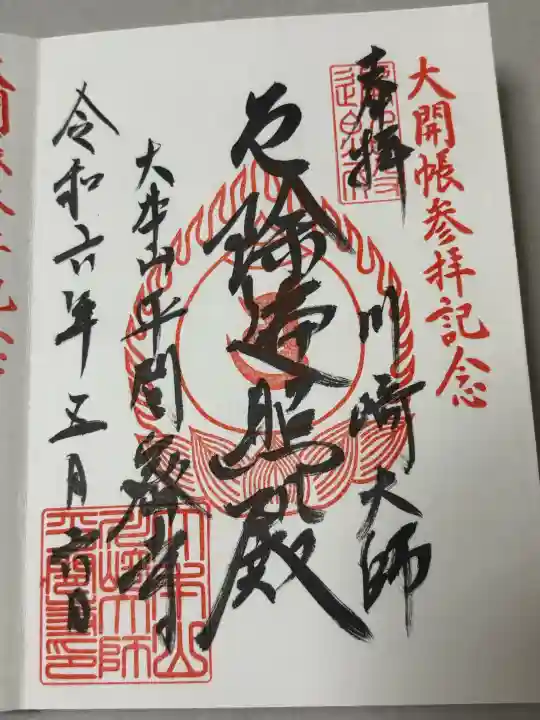 大開帳参拝記念
奉拝
川崎大師
厄除遍照殿
大本山平間寺
令和六年五月六日